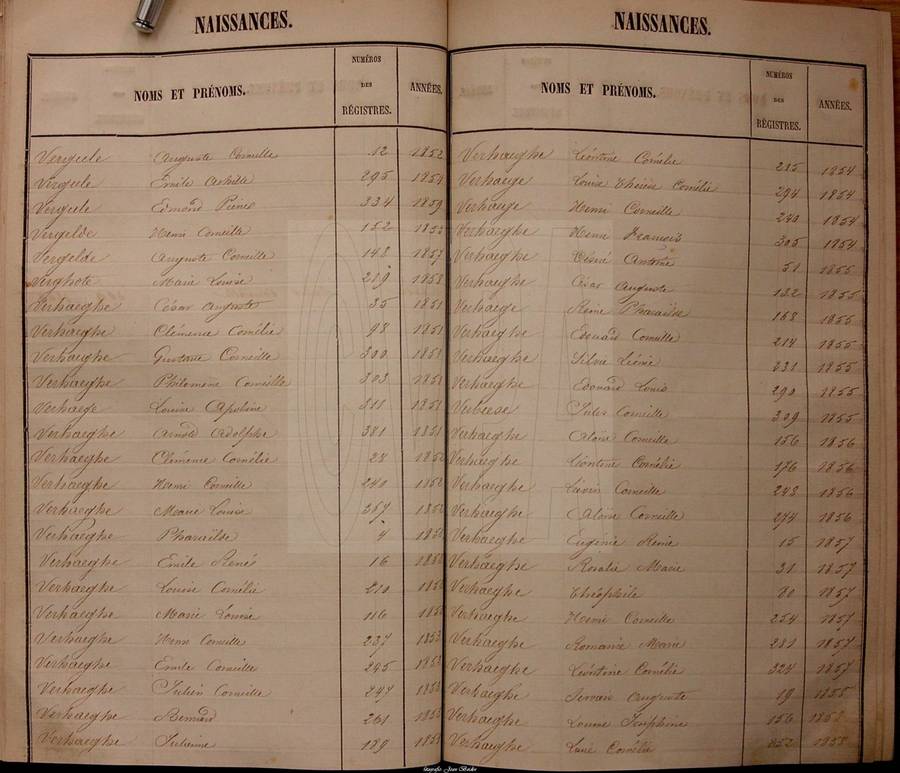 NAISSANCES.
NOMS ET PRÉNOMS. NUMÉROS DES RÉGISTRES. ANNÉES.
Vergule Auguste Corneille 12 1852
Vergule Emile Achille 295 1854
Vergule Edmond 334 1859
Vergelde Henri Corneille 152
Vergelde Auguste Corneille 148 1857
Verghote Marie Louise 219 1858
Verhaeghe César Auguste 35 1851
Verhaeghe Clémence Cornélie 98 1851
Verhaeghe Gustave Corneille 300 1851
Verhaeghe Philomène Corneille 303 1851
Verhaege Louise Apoline 311 1851
Verhaeghe Arnold Adolphe 381 1851
Verhaeghe Clémence Cornélie 28
Verhaeghe Henri Corneille 240
Verhaeghe Marie Louise 257
Verhaeghe Pharaïlde 4
Verhaeghe Emile René 16
Verhaeghe Louise Cornélie 210
Verhaeghe Marie Louise 116
Verhaeghe Henri Corneille 237 1853
Verhaeghe Emile Corneille 245 1853
Verhaeghe Julien Corneille 247 1853
Verhaeghe Bernard 261 1853
Verhaeghe 189
NAISSANCES.
NOMS ET PRÉNOMS. NUMÉROS DES RÉGISTRES. ANNÉES.
Verhaeghe Léontine Cornélie 215 1854
Verhaege Louise Thérèse Cornélie 294 1854
Verhaege Henri Corneille 240 1854
Verhaeghe Henri François 305 1854
Verhaeghe Désiré Antoine 51 1855
Verhaeghe César Auguste 132 1855
Verhaege Reine Pharaïlde 158 1855
Verhaeghe Edouard Corneille 214 1855
Verhaeghe Silvie 231 1855
Verhaeghe Edouard Louis 290 1855
Jules Corneille 309 1855
Verhaeghe Aloïse Corneille 156 1856
Verhaeghe Léontine Cornélie 176 1856
Verhaeghe Liévin Corneille 243 1856
Verhaeghe Aloïse Corneille 274 1856
Verhaeghe Eugénie Reine 15 1857
Verhaeghe Rosalie Marie 31 1857
Verhaeghe Théophile 80 1857
Verhaeghe Henri Corneille 254 1857
Verhaeghe Romanie Marie 281 1857
Verhaeghe Léontine Cornélie 324 1857
Verhaeghe Servais Auguste 19
Verhaeghe Louise Joséphine 156 1858
Verhaeghe Cornélie 1858